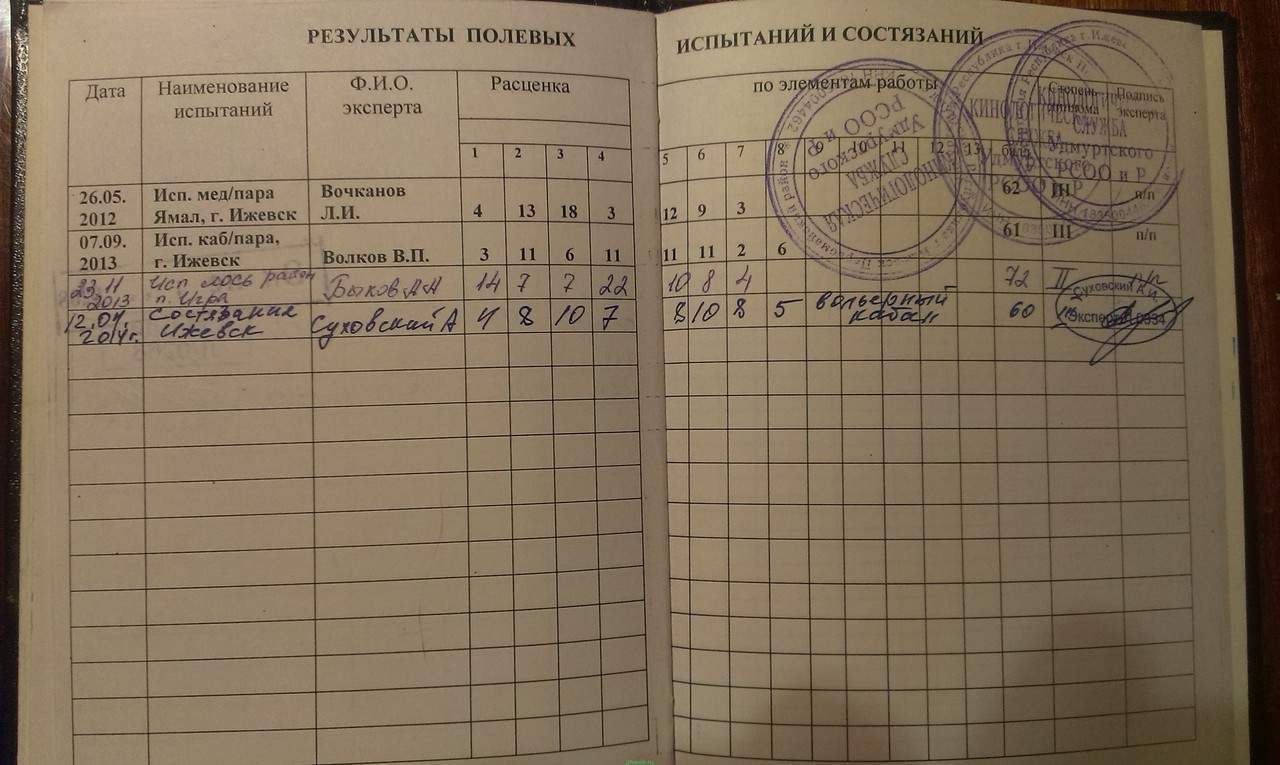 РЕЗУЛЬТАТЫ ПОЛЕВЫХ ИСПЫТАНИЙ И СОСТЯЗАНИЙ
Дата Наименование испытаний Ф.И.О. эксперта Расценка по элементам работы Степень диплома Подпись эксперта
1 2 3 4 5 6 7 8 9 10 11 12 13 балл
26.05. Исп. мед/пара Вочканов
2012 Ямал, г. Ижевск Л.И. 4 13 18 3 12 9 3 62 III п/п
07.09. Исп. каб/пара,
2013 г. Ижевск Волков В.П. 3 11 6 11 11 11 2 6 61 III п/п
23.11 Исп лось район
2013 п. Игра Быков АА 14 7 7 22 10 8 4 72 II пп
12.04 Состязания
2014г. Ижевск Суховский А 4 8 10 7 8 10 8 5 вольерный кабан 60 III
Суховский А.И.
Эксперт
КИНОЛОГИЧЕСКАЯ
СЛУЖБА
Удмуртского
РСОО и Р
КИНОЛОГИЧЕСКАЯ
СЛУЖБА
Удмуртского
РСОО и Р
СЛУЖБА
Удмуртского
РСОО и Р